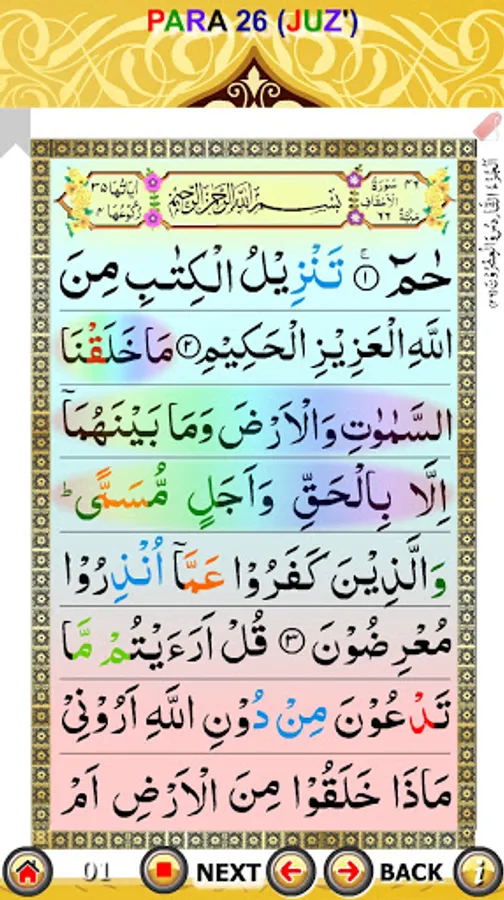 PARA 26 (JUZ')
سُوْرَةُ الْاَحْقَافِ مَكِّيَّةٌ ٤٦ ٦٦
بِسْمِ اللّٰهِ الرَّحْمٰنِ الرَّحِيْمِ
اٰيَاتُهَا ٣٥ رُكُوْعُهَا ٤
حٰمٓ ۚ ١ تَنْزِيْلُ الْكِتٰبِ مِنَ
اللّٰهِ الْعَزِيْزِ الْحَكِيْمِ ٢ مَا خَلَقْنَا
السَّمٰوٰتِ وَالْاَرْضَ وَمَا بَيْنَهُمَاۤ
اِلَّا بِالْحَقِّ وَاَجَلٍ مُّسَمًّی ؕ
وَالَّذِيْنَ كَفَرُوْا عَمَّاۤ اُنْذِرُوْا
مُعْرِضُوْنَ ٣ قُلْ اَرَءَيْتُمْ مَّا
تَدْعُوْنَ مِنْ دُوْنِ اللّٰهِ اَرُوْنِیْ
مَاذَا خَلَقُوْا مِنَ الْاَرْضِ اَمْ
01 NEXT BACK i